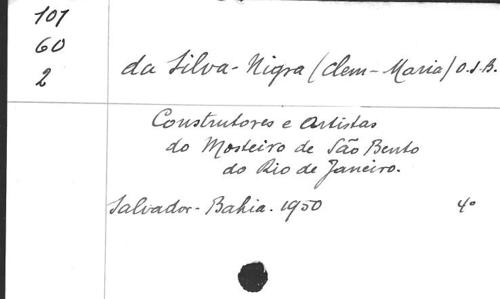 107
60
2
da Silva-Nigra (Clem-Maria) O.S.B.
Construtores e Artistas
do Mosteiro de São Bento
do Rio de Janeiro.
Salvador-Bahia. 1950 4°